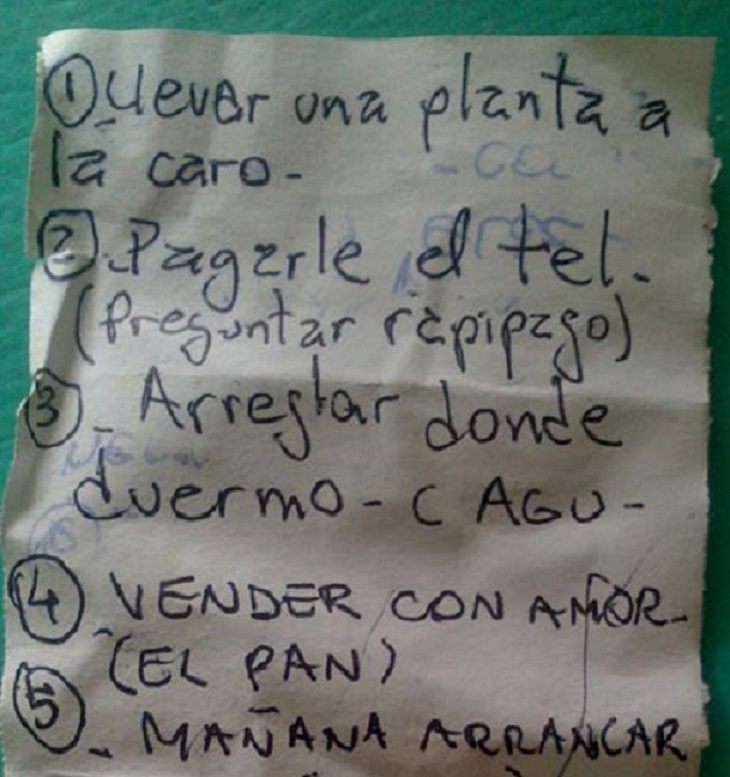 ① Llevar una planta a
la caro-
② Pagarle el tel.
(Preguntar rapipago)
③ - Arreglar donde
duermo - C AGU -
④ VENDER CON AMOR-
(EL PAN)
⑤ - MAÑANA ARRANCAR